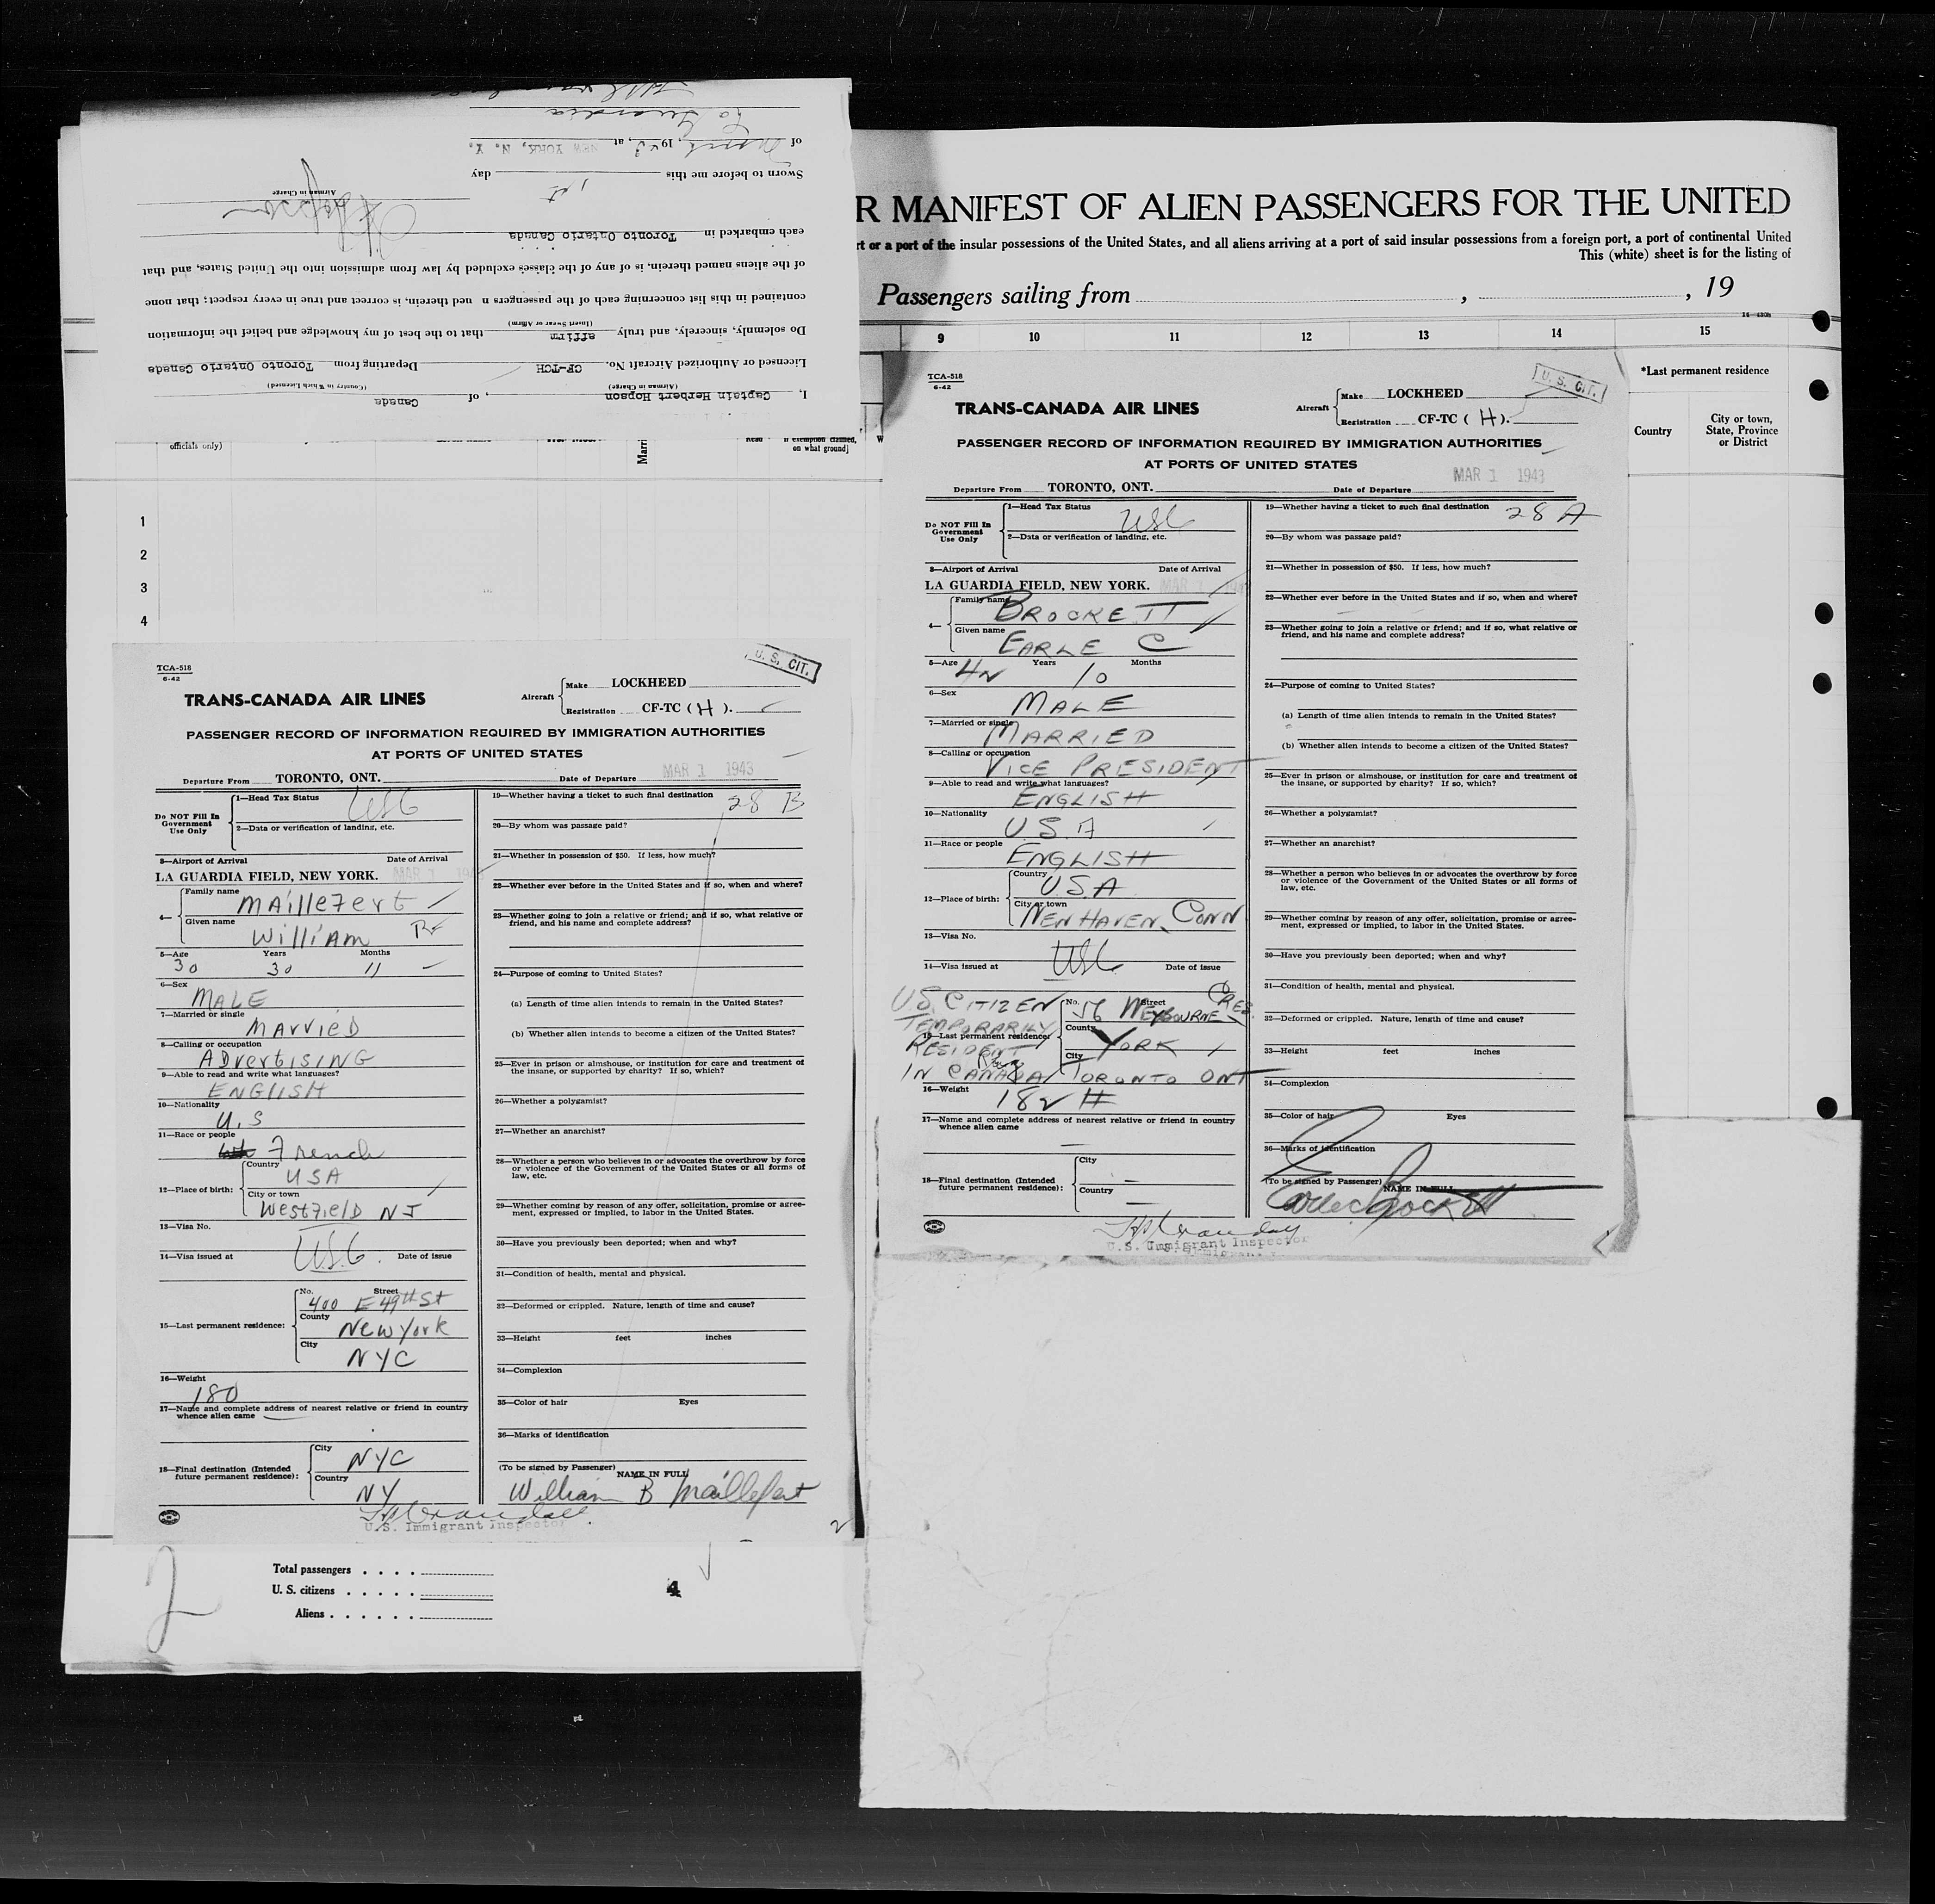 I, Captain Herbert Hopson, of Canada
(Airman in Charge) (Country in Which Licensed)
Licensed or Authorized Aircraft No. CF-TCH Departing from Toronto Ontario Canada
Do solemnly, sincerely, and truly affirm that to the best of my knowledge and belief the information
(Insert Swear or Affirm)
contained in this list concerning each of the passengers n ned therein, is correct and true in every respect; that none
of the aliens named therein, is of any of the classes excluded by law from admission into the United States, and that
each embarked in Toronto Ontario Canada
Airman in Charge
Sworn to before me this 1st day
of , 1943, at NEW YORK, N. Y.
La Guardia
R MANIFEST OF ALIEN PASSENGERS FOR THE UNITED
rt or a port of the insular possessions of the United States, and all aliens arriving at a port of said insular possessions from a foreign port, a port of continental United
This (white) sheet is for the listing of
Passengers sailing from , , 19
9 10 11 12 13 14 15
*Last permanent residence
Country
City or town, State, Province or District
officials only)
Read
if exemption claimed, on what ground]
1
2
3
4
TCA-518
6-42
U. S. CIT.
TRANS-CANADA AIR LINES
Aircraft
Make LOCKHEED
Registration CF-TC ( H ).
PASSENGER RECORD OF INFORMATION REQUIRED BY IMMIGRATION AUTHORITIES
AT PORTS OF UNITED STATES
Departure From TORONTO, ONT. Date of Departure MAR 1 1943
Do NOT Fill In Government Use Only
1—Head Tax Status USC
2—Data or verification of landing, etc.
3—Airport of Arrival Date of Arrival
LA GUARDIA FIELD, NEW YORK. MAR 1
4—
Family name MAillefert
Given name William
5—Age 30 Years 30 Months 11
6—Sex MALE
7—Married or single MArriED
8—Calling or occupation ADvertISING
9—Able to read and write what languages? ENGLISH
10—Nationality U.S
11—Race or people French
12—Place of birth:
Country USA
City or town WestfielD NJ
13—Visa No.
14—Visa issued at USC Date of issue
15—Last permanent residence:
No. Street 400 E 49tH St
County New York
City NYC
16—Weight 180
17—Name and complete address of nearest relative or friend in country
whence alien came
18—Final destination (Intended future permanent residence):
City NYC
Country NY
U.S. Immigrant Inspector
19—Whether having a ticket to such final destination 28 B
20—By whom was passage paid?
21—Whether in possession of $50. If less, how much?
22—Whether ever before in the United States and if so, when and where?
23—Whether going to join a relative or friend; and if so, what relative or
friend, and his name and complete address?
24—Purpose of coming to United States?
(a) Length of time alien intends to remain in the United States?
(b) Whether alien intends to become a citizen of the United States?
25—Ever in prison or almshouse, or institution for care and treatment of
the insane, or supported by charity? If so, which?
26—Whether a polygamist?
27—Whether an anarchist?
28—Whether a person who believes in or advocates the overthrow by force
or violence of the Government of the United States or all forms of
law, etc.
29—Whether coming by reason of any offer, solicitation, promise or agree-
ment, expressed or implied, to labor in the United States.
30—Have you previously been deported; when and why?
31—Condition of health, mental and physical.
32—Deformed or crippled. Nature, length of time and cause?
33—Height feet inches
34—Complexion
35—Color of hair Eyes
36—Marks of identification
(To be signed by Passenger) NAME IN FULL
William B Maillefert
2
2
Total passengers . . . .
U. S. citizens . . . . .
Aliens . . . . . .
4
TCA-518
6-42
U. S. CIT.
TRANS-CANADA AIR LINES
Aircraft
Make LOCKHEED
Registration CF-TC ( H ).
PASSENGER RECORD OF INFORMATION REQUIRED BY IMMIGRATION AUTHORITIES
AT PORTS OF UNITED STATES
Departure From TORONTO, ONT. Date of Departure MAR 1 1943
Do NOT Fill In Government Use Only
1—Head Tax Status USC
2—Data or verification of landing, etc.
3—Airport of Arrival Date of Arrival
LA GUARDIA FIELD, NEW YORK. MAR 1
4—
Family name BROCKETT
Given name EARLE C
5—Age 42 Years 10 Months
6—Sex MALE
7—Married or single MARRIED
8—Calling or occupation VICE PRESIDENT
9—Able to read and write what languages? ENGLISH
10—Nationality U.S.A
11—Race or people ENGLISH
12—Place of birth:
Country U.S.A
City or town NEW HAVEN, CONN
13—Visa No.
14—Visa issued at USC Date of issue
U.S. CITIZEN TEMPORARILY RESIDENT IN CANADA
15—Last permanent residence:
No. Street 56 WEYBOURNE CRES.
County YORK
City TORONTO ONT
16—Weight 182
17—Name and complete address of nearest relative or friend in country
whence alien came
18—Final destination (Intended future permanent residence):
City —
Country —
U.S. Immigrant Inspector
19—Whether having a ticket to such final destination 28 A
20—By whom was passage paid?
21—Whether in possession of $50. If less, how much?
22—Whether ever before in the United States and if so, when and where?
23—Whether going to join a relative or friend; and if so, what relative or
friend, and his name and complete address?
24—Purpose of coming to United States?
(a) Length of time alien intends to remain in the United States?
(b) Whether alien intends to become a citizen of the United States?
25—Ever in prison or almshouse, or institution for care and treatment of
the insane, or supported by charity? If so, which?
26—Whether a polygamist?
27—Whether an anarchist?
28—Whether a person who believes in or advocates the overthrow by force
or violence of the Government of the United States or all forms of
law, etc.
29—Whether coming by reason of any offer, solicitation, promise or agree-
ment, expressed or implied, to labor in the United States.
30—Have you previously been deported; when and why?
31—Condition of health, mental and physical.
32—Deformed or crippled. Nature, length of time and cause?
33—Height feet inches
34—Complexion
35—Color of hair Eyes
36—Marks of identification
(To be signed by Passenger) NAME IN FULL
Earle C Brockett